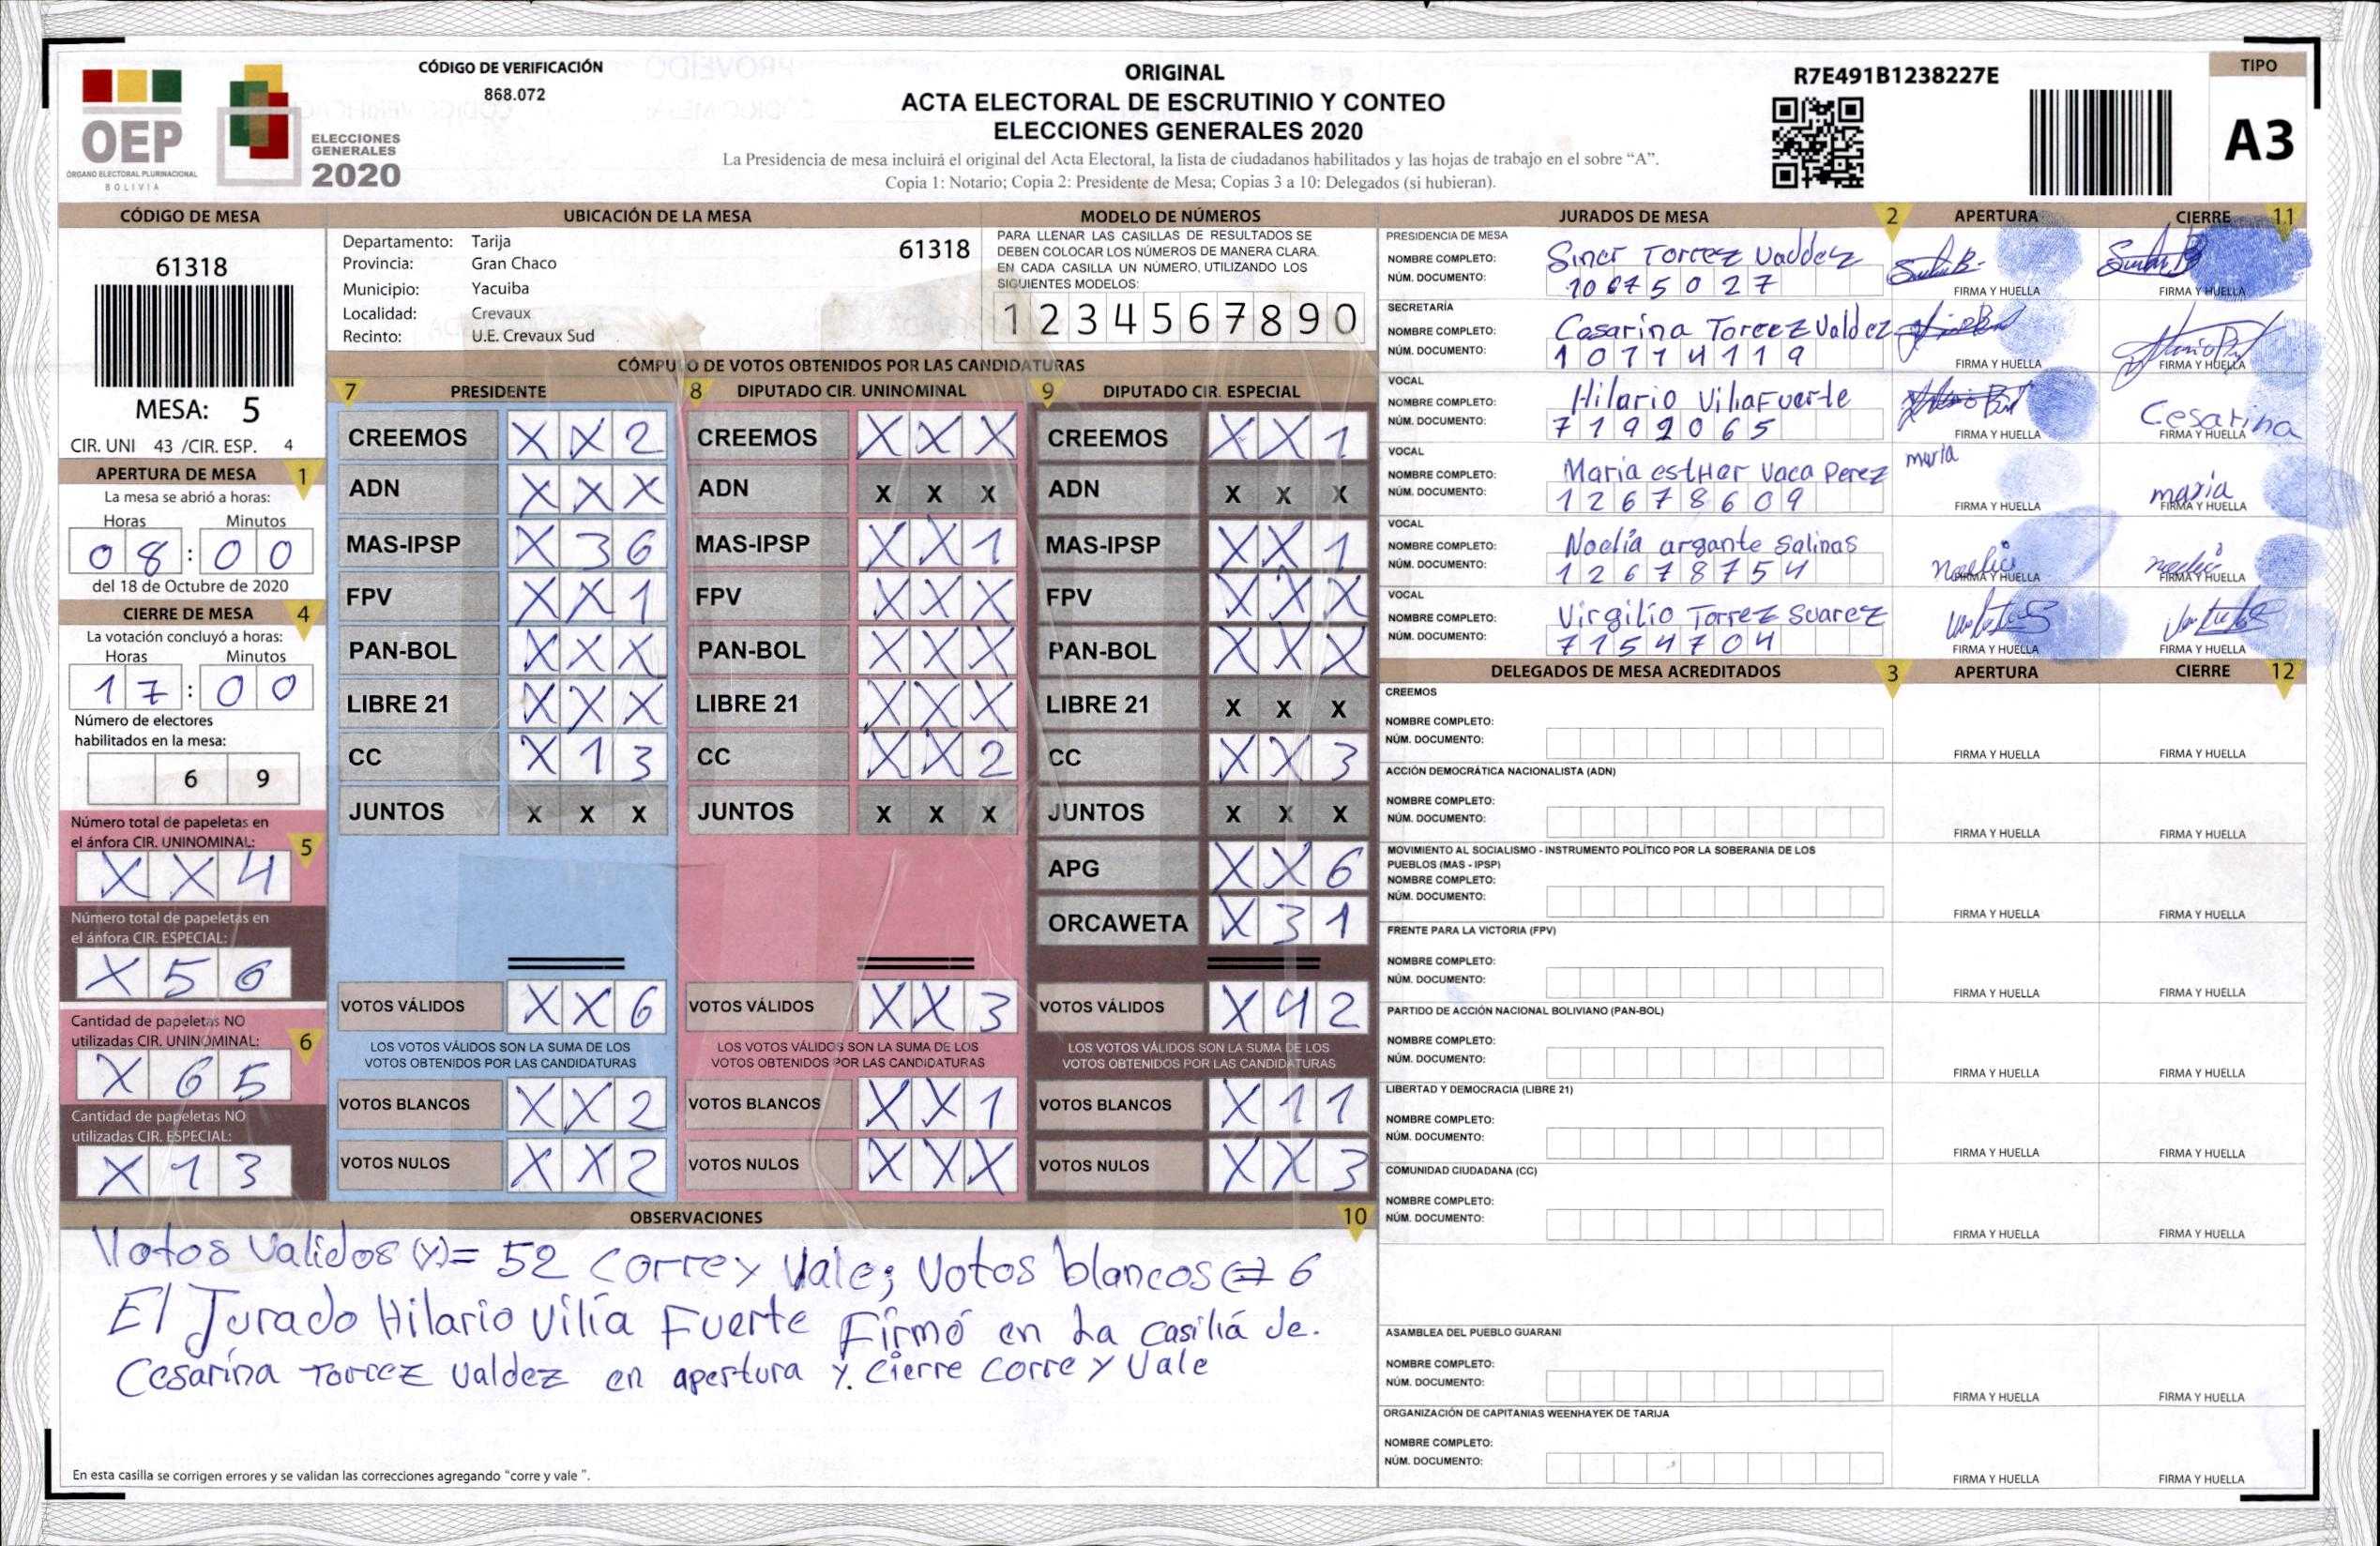 CÓDIGO DE VERIFICACIÓN
868.072
OEP
ÓRGANO ELECTORAL PLURINACIONAL
BOLIVIA
ELECCIONES
GENERALES
2020
ORIGINAL
ACTA ELECTORAL DE ESCRUTINIO Y CONTEO
ELECCIONES GENERALES 2020
La Presidencia de mesa incluirá el original del Acta Electoral, la lista de ciudadanos habilitados y las hojas de trabajo en el sobre “A”.
Copia 1: Notario; Copia 2: Presidente de Mesa; Copias 3 a 10: Delegados (si hubieran).
R7E491B1238227E
TIPO
A3
CÓDIGO DE MESA
61318
MESA: 5
CIR. UNI 43 /CIR. ESP. 4
APERTURA DE MESA 1
La mesa se abrió a horas:
Horas Minutos
0 8 : 0 0
del 18 de Octubre de 2020
CIERRE DE MESA 4
La votación concluyó a horas:
Horas Minutos
1 7 : 0 0
Número de electores
habilitados en la mesa:
6 9
Número total de papeletas en
el ánfora CIR. UNINOMINAL: 5
X X 4
Número total de papeletas en
el ánfora CIR. ESPECIAL:
X 5 6
Cantidad de papeletas NO
utilizadas CIR. UNINOMINAL: 6
X 6 5
Cantidad de papeletas NO
utilizadas CIR. ESPECIAL:
X 1 3
UBICACIÓN DE LA MESA
Departamento: Tarija 61318
Provincia: Gran Chaco
Municipio: Yacuiba
Localidad: Crevaux
Recinto: U.E. Crevaux Sud
MODELO DE NÚMEROS
PARA LLENAR LAS CASILLAS DE RESULTADOS SE
DEBEN COLOCAR LOS NÚMEROS DE MANERA CLARA.
EN CADA CASILLA UN NÚMERO, UTILIZANDO LOS
SIGUIENTES MODELOS:
1 2 3 4 5 6 7 8 9 0
CÓMPUTO DE VOTOS OBTENIDOS POR LAS CANDIDATURAS
7 PRESIDENTE
CREEMOS X X 2
ADN X X X
MAS-IPSP X 3 6
FPV X X 1
PAN-BOL X X X
LIBRE 21 X X X
CC X 1 3
JUNTOS X X X
VOTOS VÁLIDOS X X 6
LOS VOTOS VÁLIDOS SON LA SUMA DE LOS
VOTOS OBTENIDOS POR LAS CANDIDATURAS
VOTOS BLANCOS X X 2
VOTOS NULOS X X 2
8 DIPUTADO CIR. UNINOMINAL
CREEMOS X X X
ADN X X X
MAS-IPSP X X 1
FPV X X X
PAN-BOL X X X
LIBRE 21 X X X
CC X X 2
JUNTOS X X X
VOTOS VÁLIDOS X X 3
LOS VOTOS VÁLIDOS SON LA SUMA DE LOS
VOTOS OBTENIDOS POR LAS CANDIDATURAS
VOTOS BLANCOS X X 1
VOTOS NULOS X X X
9 DIPUTADO CIR. ESPECIAL
CREEMOS X X 1
ADN X X X
MAS-IPSP X X 1
FPV X X X
PAN-BOL X X X
LIBRE 21 X X X
CC X X 3
JUNTOS X X X
APG X X 6
ORCAWETA X 3 1
VOTOS VÁLIDOS X 4 2
LOS VOTOS VÁLIDOS SON LA SUMA DE LOS
VOTOS OBTENIDOS POR LAS CANDIDATURAS
VOTOS BLANCOS X 1 1
VOTOS NULOS X X 3
OBSERVACIONES 10
Votos Validos (v)= 52 Corre y Vale; Votos blancos = 6
El Jurado Hilario Vilía Fuerte Firmó en La Casiliá de.
Cesarina Torrez Valdez en apertura y. Cierre Corre y Vale
En esta casilla se corrigen errores y se validan las correcciones agregando “corre y vale ”.
JURADOS DE MESA 2 APERTURA CIERRE 11
PRESIDENCIA DE MESA
NOMBRE COMPLETO: Torrez
NÚM. DOCUMENTO:
FIRMA Y HUELLA FIRMA Y HUELLA
SECRETARÍA
NOMBRE COMPLETO: Cesarina Torrez Valdez
NÚM. DOCUMENTO: 1 0 7 1 4 1 1 9
FIRMA Y HUELLA FIRMA Y HUELLA
VOCAL
NOMBRE COMPLETO: Hilario ViliaFuerte
NÚM. DOCUMENTO: 7 1 9 2 0 6 5
FIRMA Y HUELLA Cesarina FIRMA Y HUELLA
VOCAL
NOMBRE COMPLETO: Maria estHer Vaca Perez maria
NÚM. DOCUMENTO: 1 2 6 7 8 6 0 9 maria
FIRMA Y HUELLA FIRMA Y HUELLA
VOCAL
NOMBRE COMPLETO: Noelia argante Salinas
NÚM. DOCUMENTO: 1 2 6 7 8 7 5 4 noelia noelia
FIRMA Y HUELLA FIRMA Y HUELLA
VOCAL
NOMBRE COMPLETO: Virgilio Torrez Suarez
NÚM. DOCUMENTO: 7 1 5 4 7 0 4
FIRMA Y HUELLA FIRMA Y HUELLA
DELEGADOS DE MESA ACREDITADOS 3 APERTURA CIERRE 12
CREEMOS
NOMBRE COMPLETO:
NÚM. DOCUMENTO:
FIRMA Y HUELLA FIRMA Y HUELLA
ACCIÓN DEMOCRÁTICA NACIONALISTA (ADN)
NOMBRE COMPLETO:
NÚM. DOCUMENTO:
FIRMA Y HUELLA FIRMA Y HUELLA
MOVIMIENTO AL SOCIALISMO - INSTRUMENTO POLÍTICO POR LA SOBERANIA DE LOS
PUEBLOS (MAS - IPSP)
NOMBRE COMPLETO:
NÚM. DOCUMENTO:
FIRMA Y HUELLA FIRMA Y HUELLA
FRENTE PARA LA VICTORIA (FPV)
NOMBRE COMPLETO:
NÚM. DOCUMENTO:
FIRMA Y HUELLA FIRMA Y HUELLA
PARTIDO DE ACCIÓN NACIONAL BOLIVIANO (PAN-BOL)
NOMBRE COMPLETO:
NÚM. DOCUMENTO:
FIRMA Y HUELLA FIRMA Y HUELLA
LIBERTAD Y DEMOCRACIA (LIBRE 21)
NOMBRE COMPLETO:
NÚM. DOCUMENTO:
FIRMA Y HUELLA FIRMA Y HUELLA
COMUNIDAD CIUDADANA (CC)
NOMBRE COMPLETO:
NÚM. DOCUMENTO:
FIRMA Y HUELLA FIRMA Y HUELLA
ASAMBLEA DEL PUEBLO GUARANI
NOMBRE COMPLETO:
NÚM. DOCUMENTO:
FIRMA Y HUELLA FIRMA Y HUELLA
ORGANIZACIÓN DE CAPITANIAS WEENHAYEK DE TARIJA
NOMBRE COMPLETO:
NÚM. DOCUMENTO:
FIRMA Y HUELLA FIRMA Y HUELLA